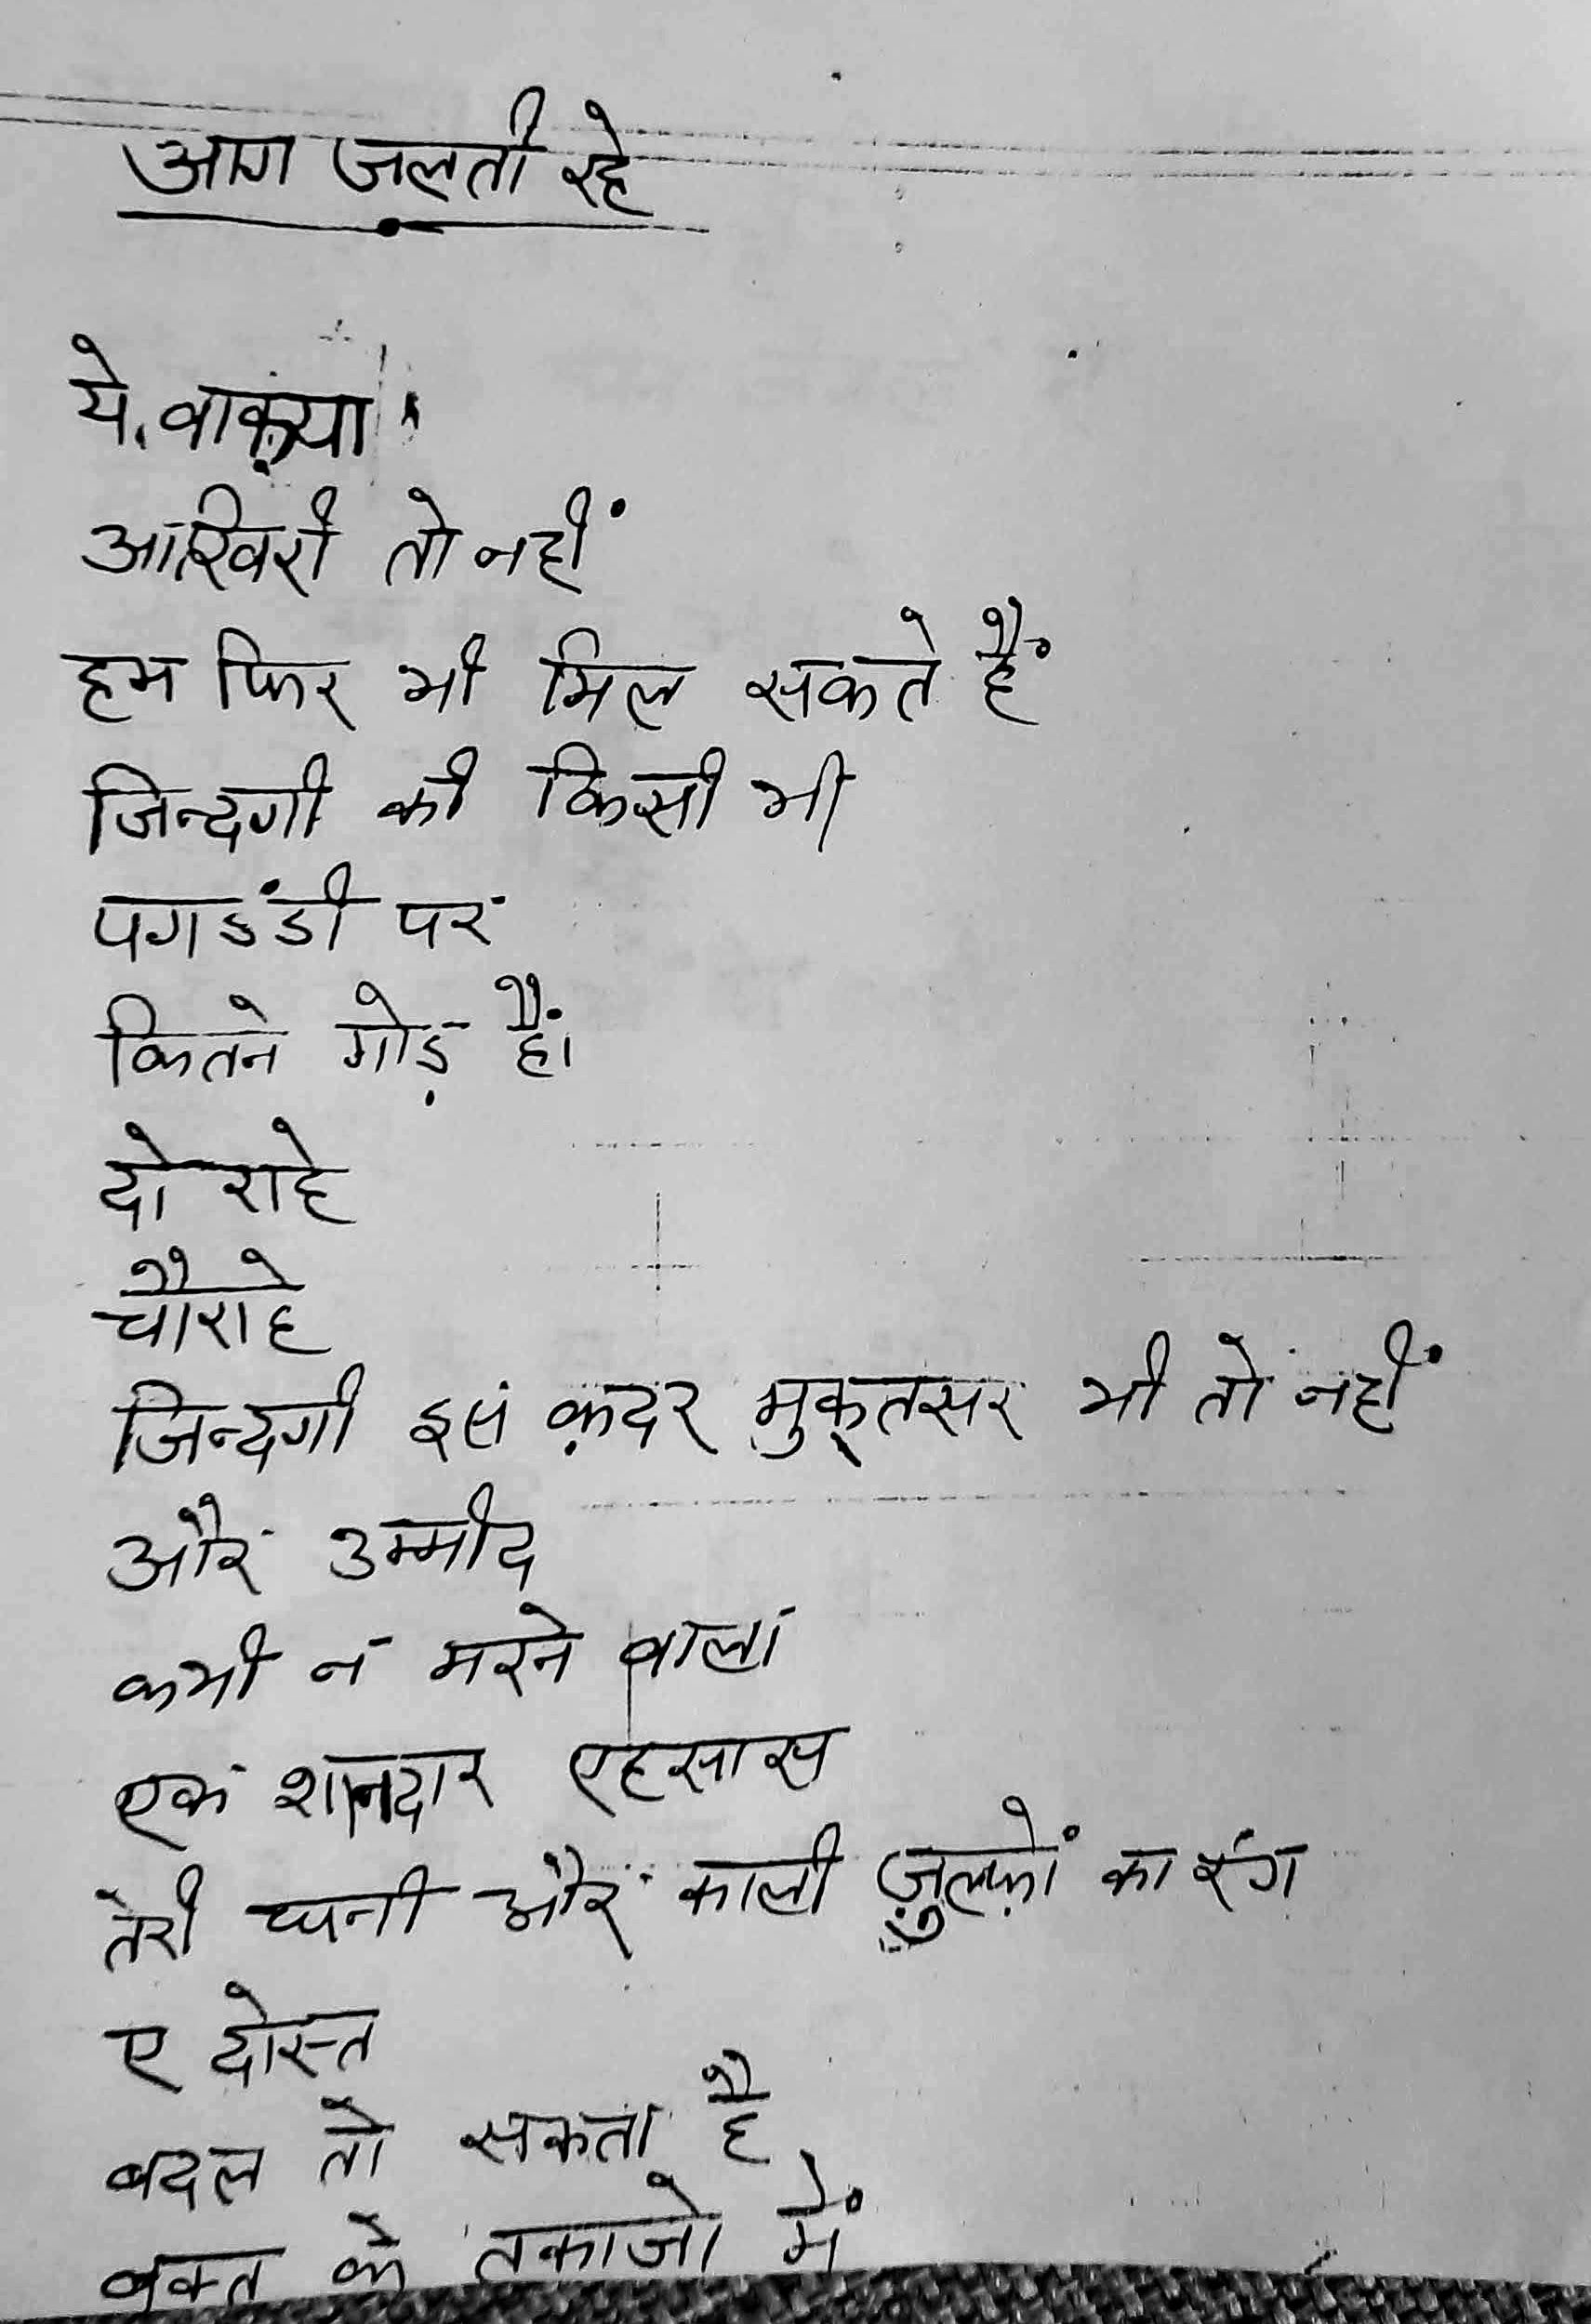 आग जलती रहे
ये वाक़्या
आखिरी तो नहीं
हम फिर भी मिल सकते हैं
जिन्दगी की किसी भी
पगडंडी पर
कितने मोड़ हैं।
दो राहे
चौराहे
जिन्दगी इस क़दर मुक्तसर भी तो नहीं
और उम्मीद
कभी न मरने वाला
एक शानदार एहसास
तेरी घनी और काली ज़ुल्फ़ों का रंग
ए दोस्त
बदल तो सकता है
वक्त के तकाजो में